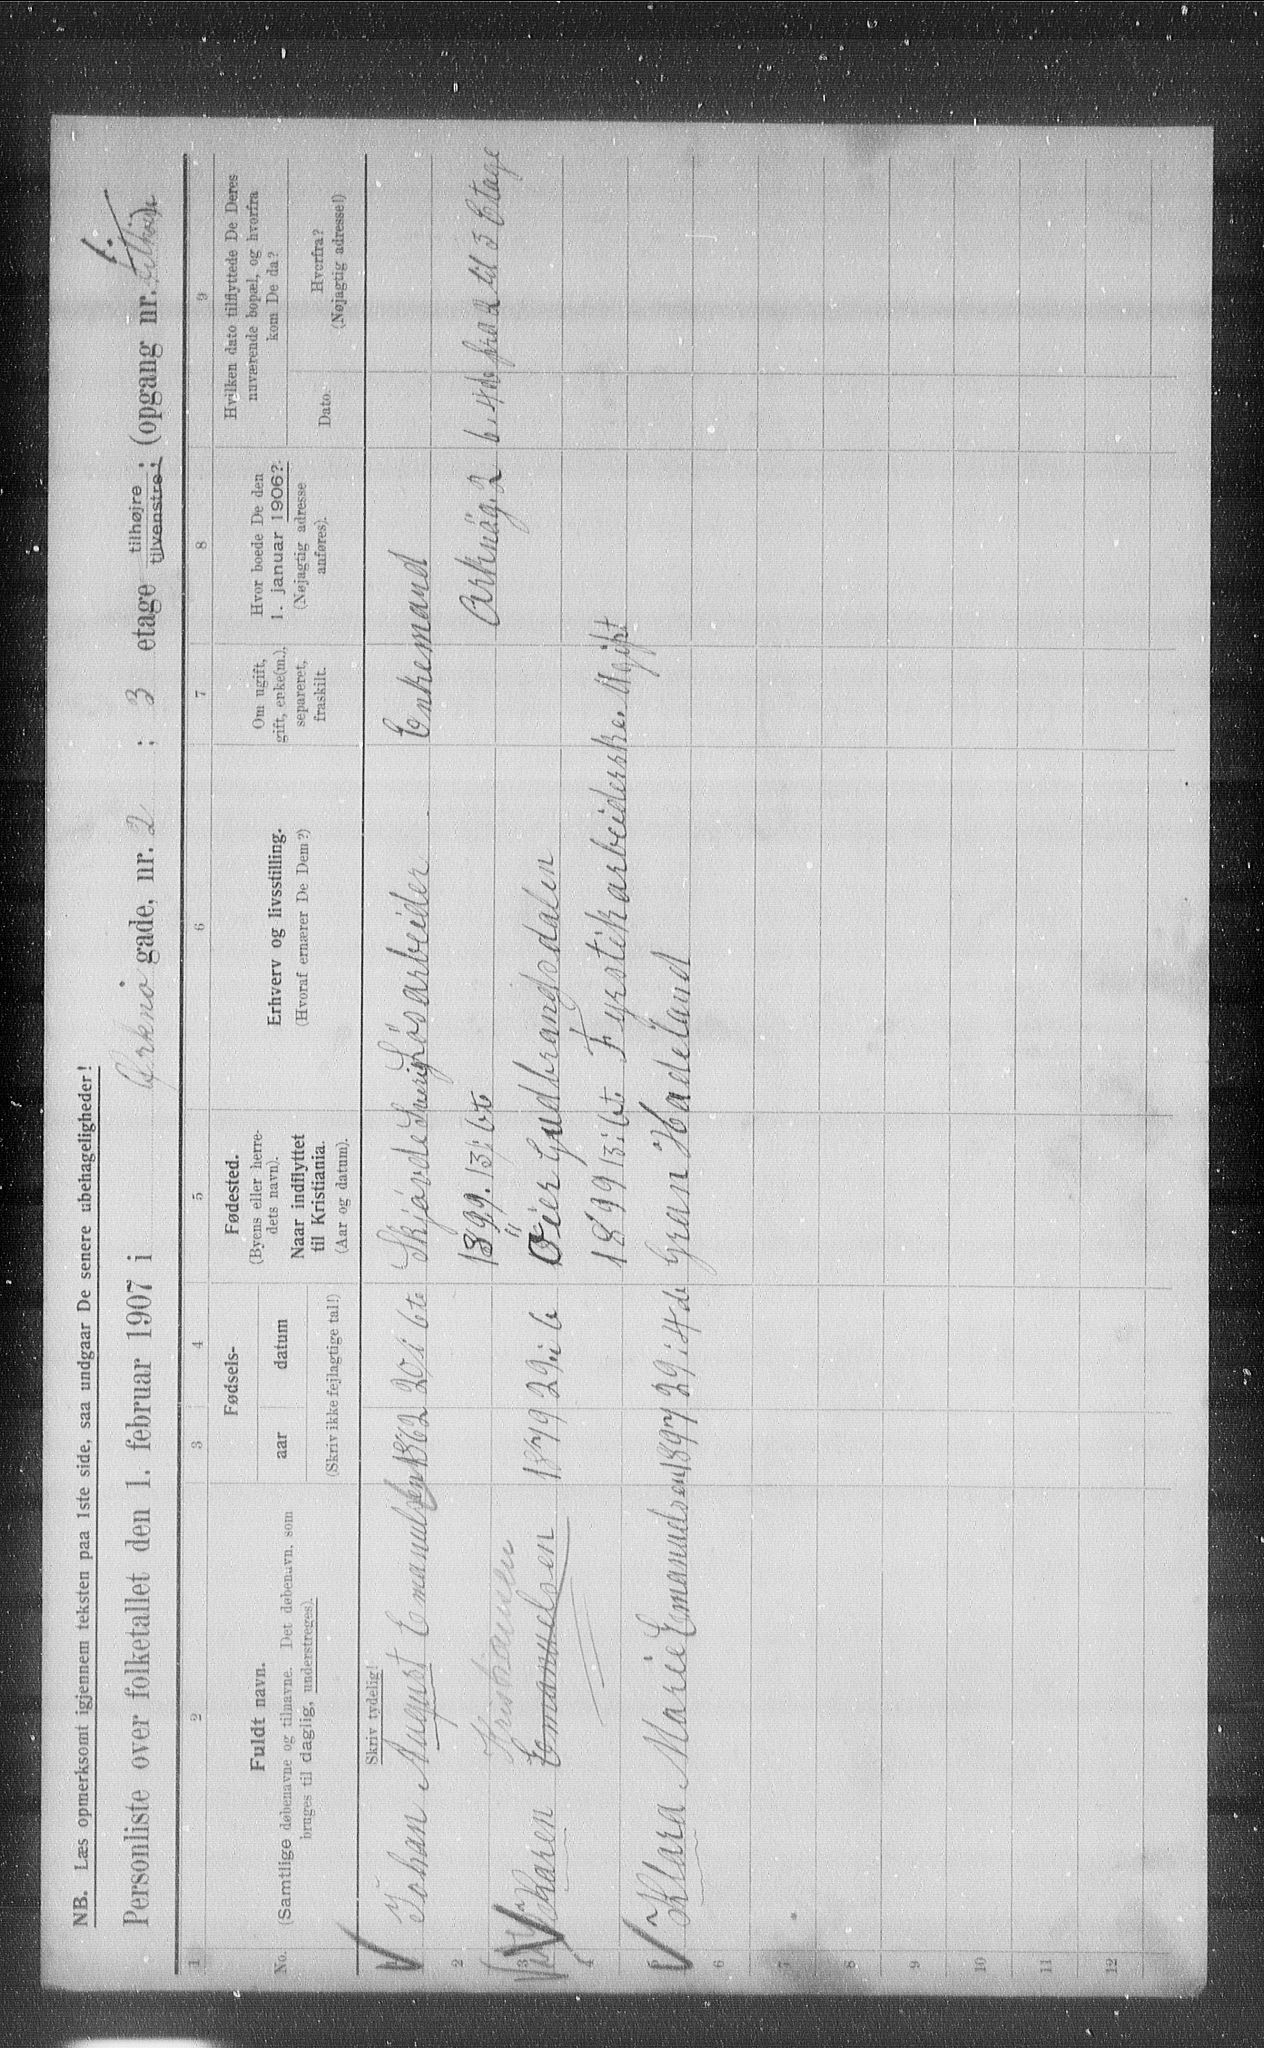 NB. Læs opmerksomt igjennem teksten paa 1ste side, saa undgaar De senere ubehageligheder!
Personliste over folketallet den 1. februar 1907 i Orknø gade, nr. 2 ; 3 etage tilhøjre ; tilvenstre ; (opgang nr.
1 2 3 4 5 6 7 8 9
No.
Fuldt navn.
(Samtlige døbenavne og tilnavne. Det døbenavn, som
bruges til daglig, understreges).
Fødsels-
aar datum
(Skriv ikke fejlagtige tal!)
Fødested.
(Byens eller herre-
dets navn).
Naar indflyttet
til Kristiania.
(Aar og datum).
Erhverv og livsstilling.
(Hvoraf ernærer De Dem?)
Om ugift,
gift, enke(m.),
separeret,
fraskilt.
Hvor boede De den
1. januar 1906?
(Nøjagtig adresse
anføres).
Hvilken dato tilflyttede De Deres
nuværende bopæl, og hvorfra
kom De da?
Dato.
Hvorfra?
(Nøjagtig adresse!)
Skriv tydelig!
Johan August Emanuelsen 1862 20 i 6te Skjövde Sverig Lösarbeider Enkemand
2 Kristiansen 1899. 13i 6te Orknög. 2 6. 4de fra 2 til 3 Etage
3 Karen Emanuelsen 1879 29 i 6 Öier Gudbrangsdalen
4 1899 13i 6te Fyrstikarbeiderske. Ugift
Klara Marie Emanuelsen 1897 29 i 4de Gran Hadeland
6
7
8
9
10
11
12